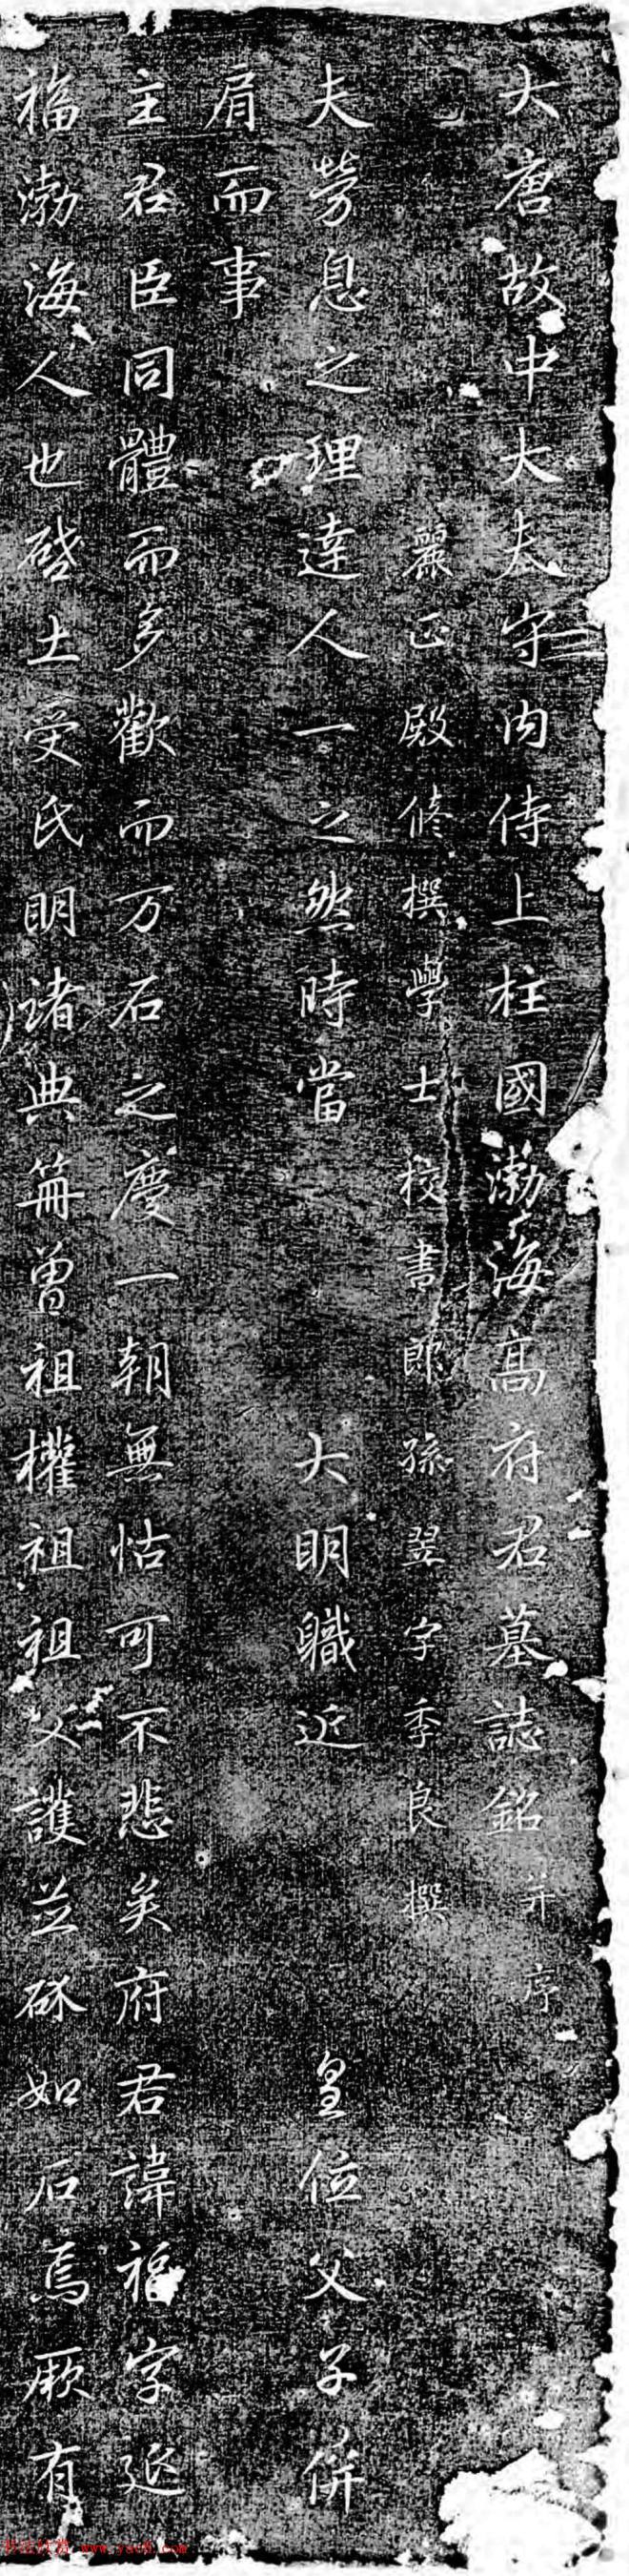 大唐故中大夫守内侍上柱國渤海高府君墓誌銘并序
麗正殿修撰學士校書郎孫翌字季良撰
夫勞息之理達人一之然時當 大明職近 皇位父子併
肩而事
主君臣同體而多歡而万石之慶一朝無怙可不悲矣府君諱福字延
福渤海人也啓土受氏明諸典冊曾祖權祖祖父護並硤如石焉厥有
www.yac8.com